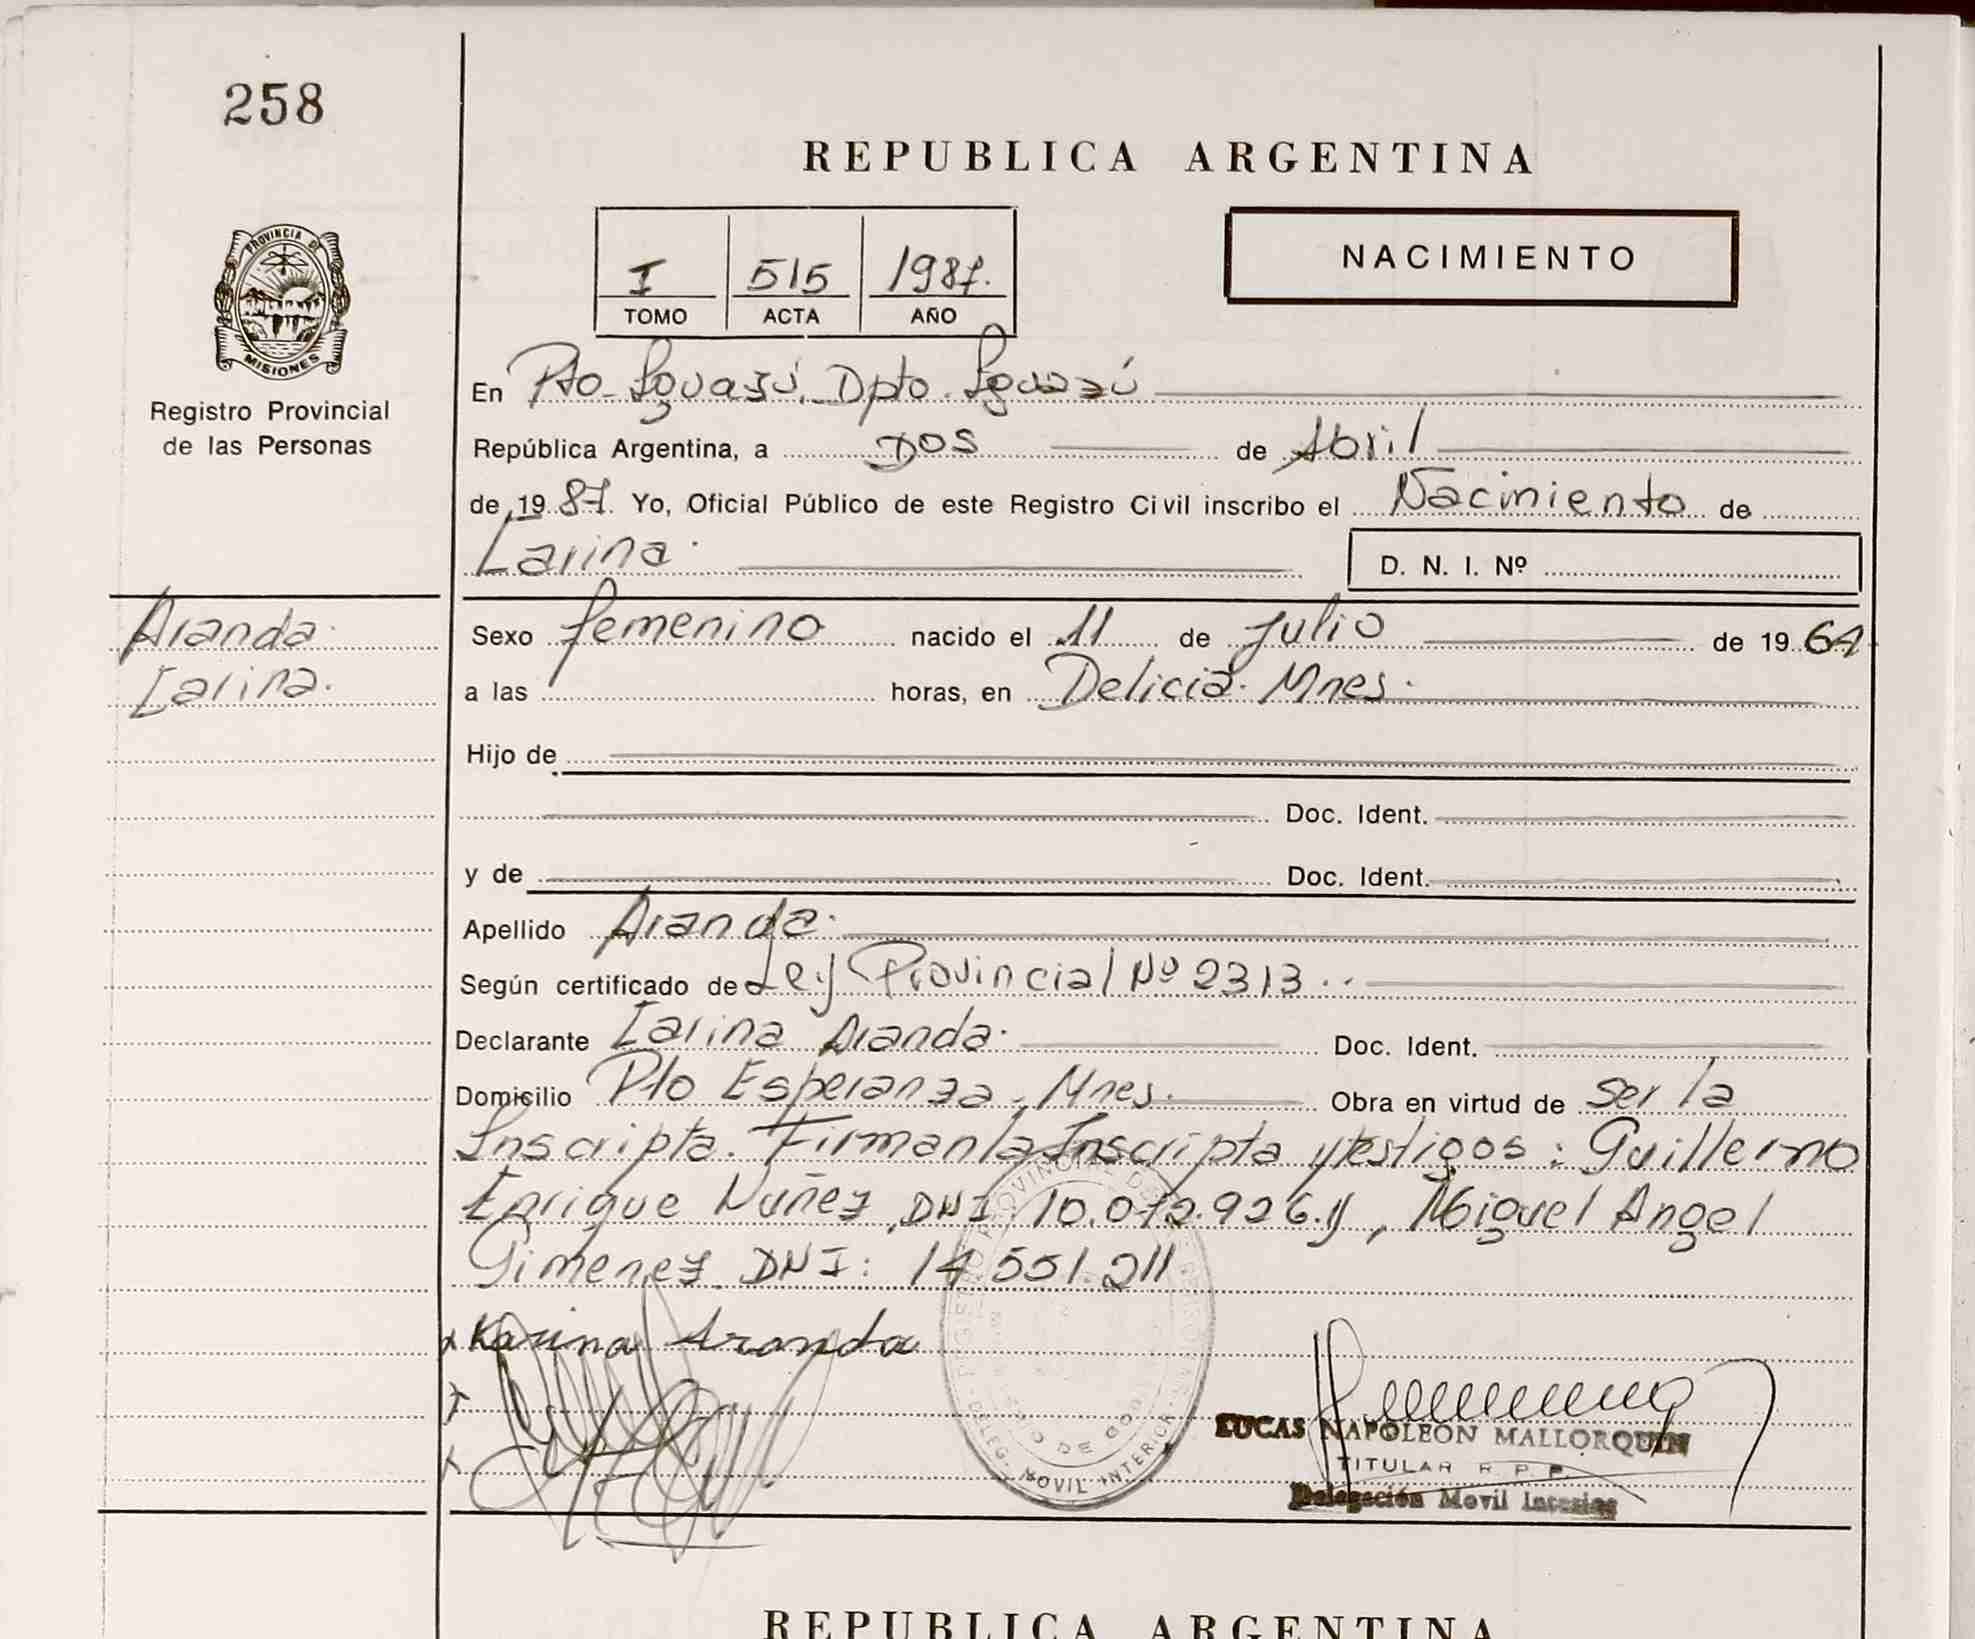 258
REPUBLICA ARGENTINA
PROVINCIA DE
MISIONES
Registro Provincial
de las Personas
NACIMIENTO
I 515 1987.
TOMO ACTA AÑO
En Pto Iguazú, Dpto. Iguazú
República Argentina, a Dos de Abril
de 1987. Yo, Oficial Público de este Registro Civil inscribo el Nacimiento de
Karina.
D. N. I. Nº
Aranda.
Karina.
Sexo femenino nacido el 11 de Julio de 1964
a las horas, en Delicia. Mnes.
Hijo de
Doc. Ident.
y de Doc. Ident.
Apellido Aranda.
Según certificado de Ley Provincial Nº 2313..
Declarante Karina Aranda. Doc. Ident.
Domicilio Pto Esperanza, Mnes. Obra en virtud de ser la
Inscripta. Firman la Inscripta y testigos: Guillermo
Enrique Nuñez, DNI 10.072.926. y, Miguel Angel
Gimenez DNI: 14 551.211
x Karina Aranda
DELEG. MOVIL INTERIOR
LUCAS NAPOLEON MALLORQUIN
TITULAR R. P. P.
Delegación Movil Interior
REPUBLICA ARGENTINA